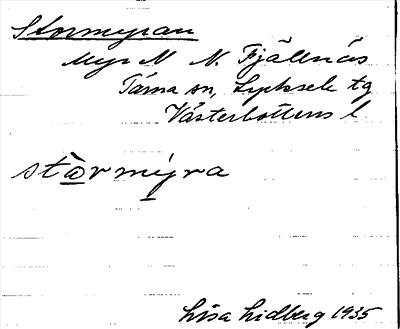 Stormyran
Myr N N. Fjällnäs
Tärna sn, Lycksele tg
Västerbottens l.
stårmýra
Lisa Lidberg 1935